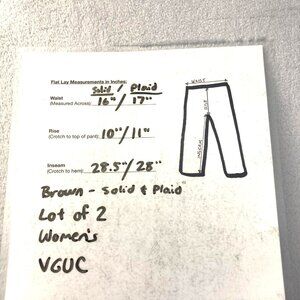 Flat Lay Measurements in Inches:
Solid / Plaid
Waist
(Measured Across) 16"/17"
Rise
(Crotch to top of pant) 10"/11"
Inseam
(Crotch to hem): 28.5"/28"
WAIST
RISE
INSEAM
Brown - Solid & Plaid
Lot of 2
Women's
VGUC